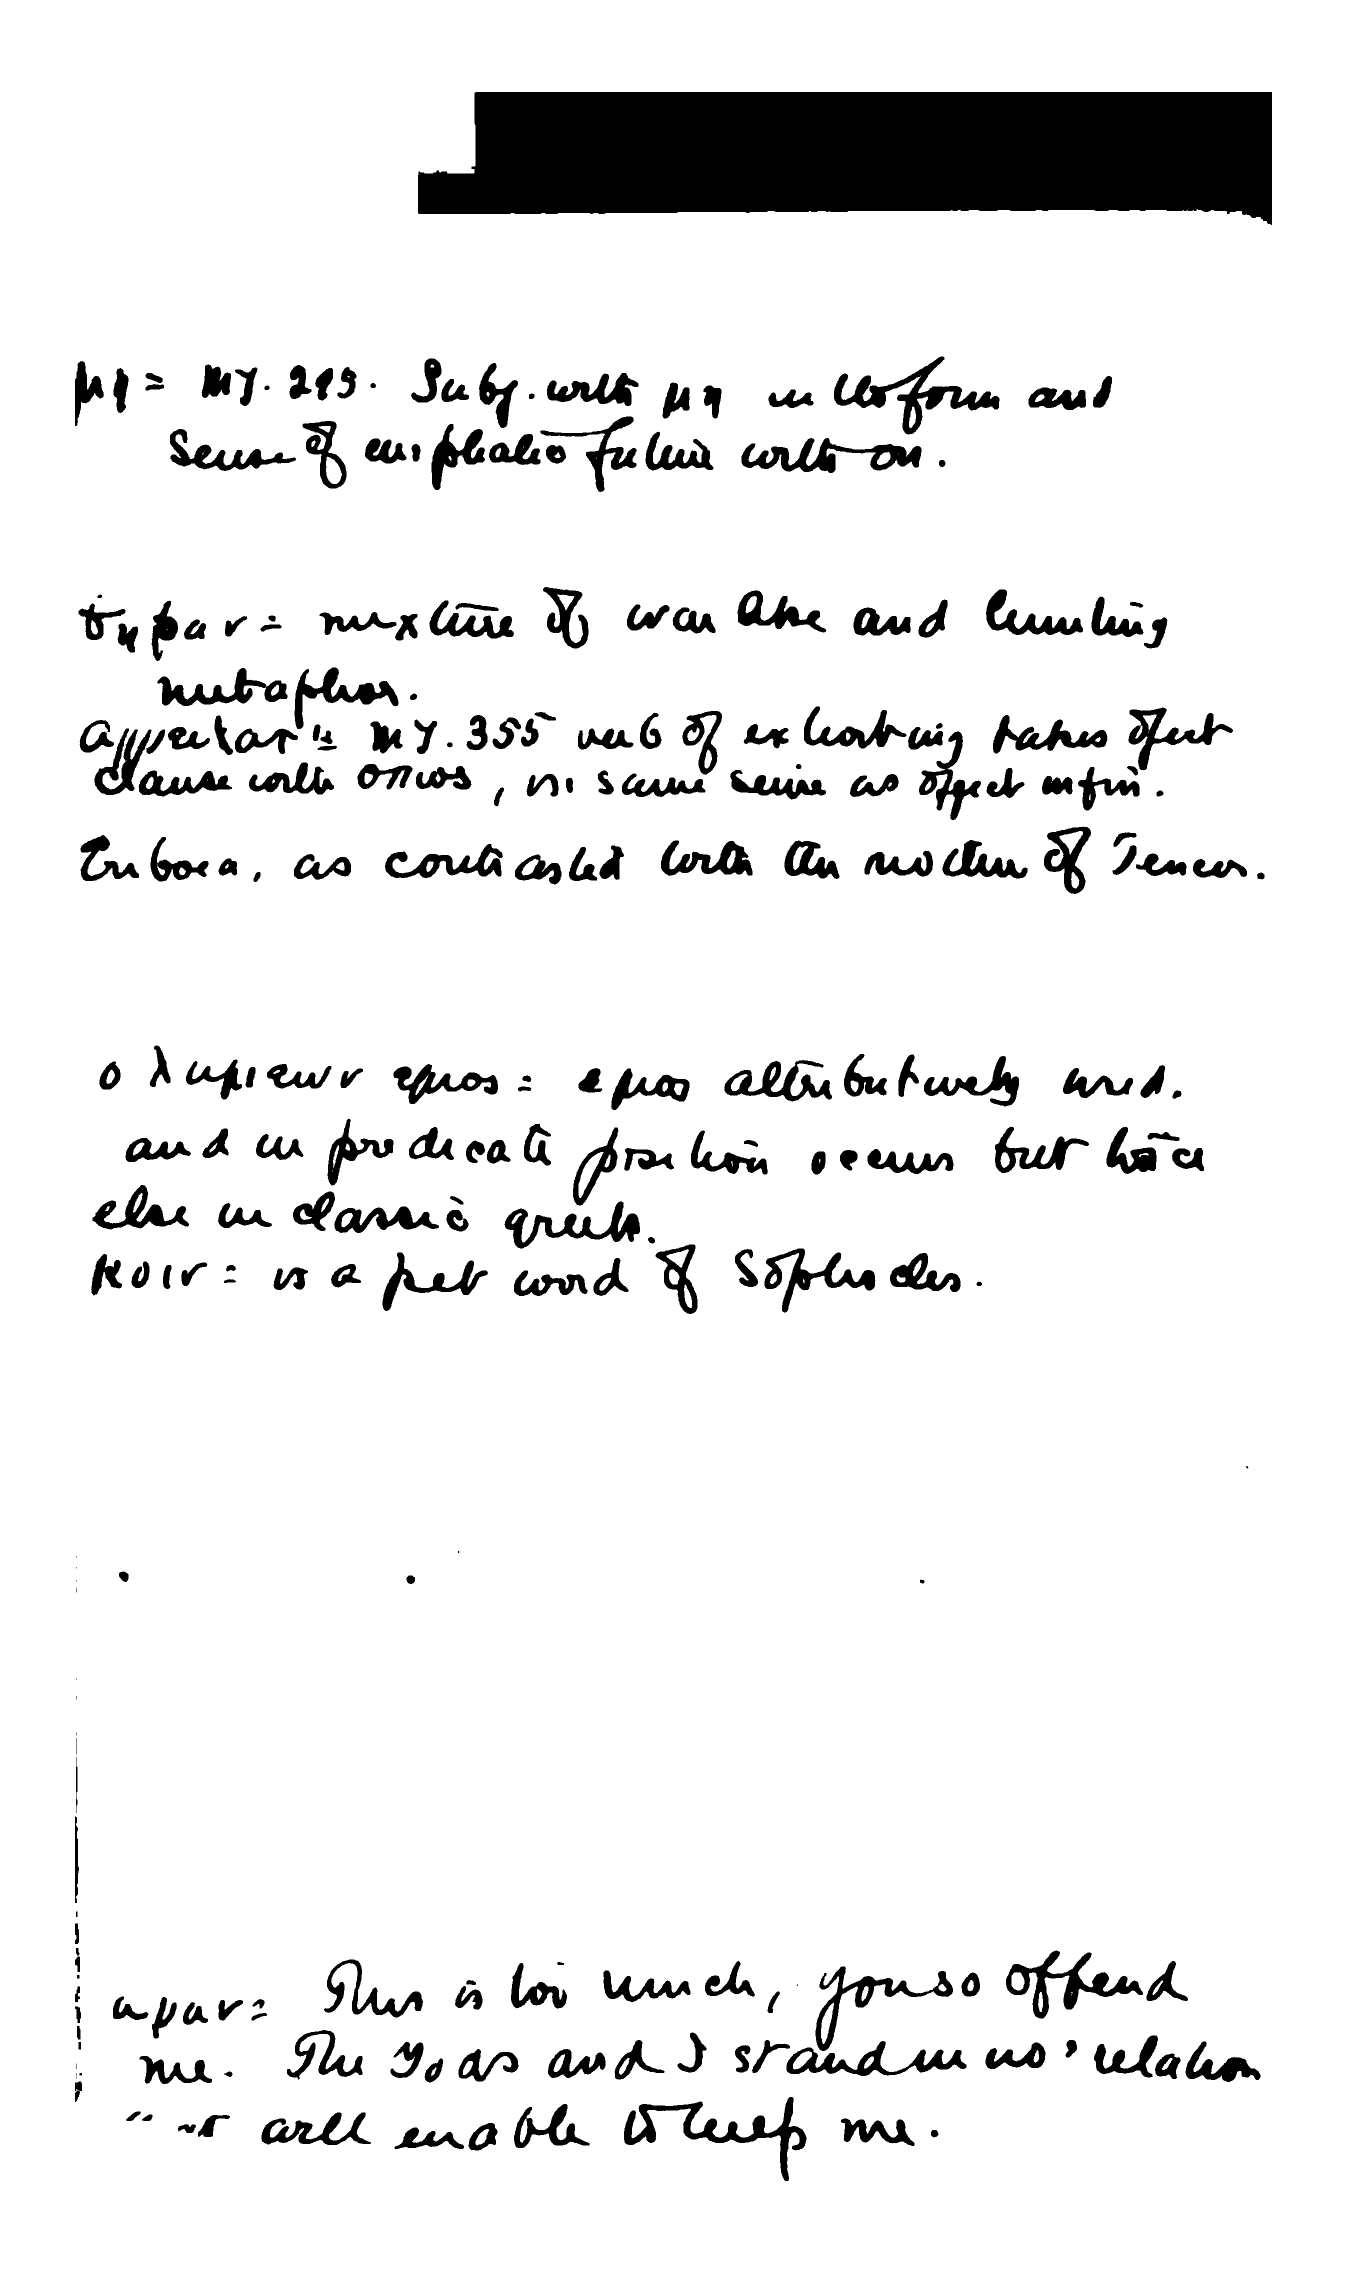 μη = MT. 295. Subj. with μη in the form and
sense of emphatic future with ou.
θηραν = mixture of war like and hunting
metaphor.
MT. 355 verb of exhorting takes object
clause with οπως, in same sense as object infin.
Euboea, as contrasted with the mother of Teucer.
ο λυμεων εμος = εμος attributively used.
and in predicate position occurs but
else in classic greek.
κοιν = is a pet word of Sophocles.
αγαν = This is too much, you so offend
me. The Gods and I stand in no relation
will enable to help me.